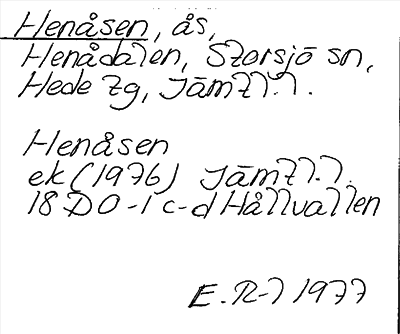 Henåsen, ås,
Henådalen, Storsjö sn,
Hede tg, Jämtl.l.
Henåsen
ek (1976) Jämtl.l.
18 D 0-1 c-d Hållvallen
E. R-l 1977